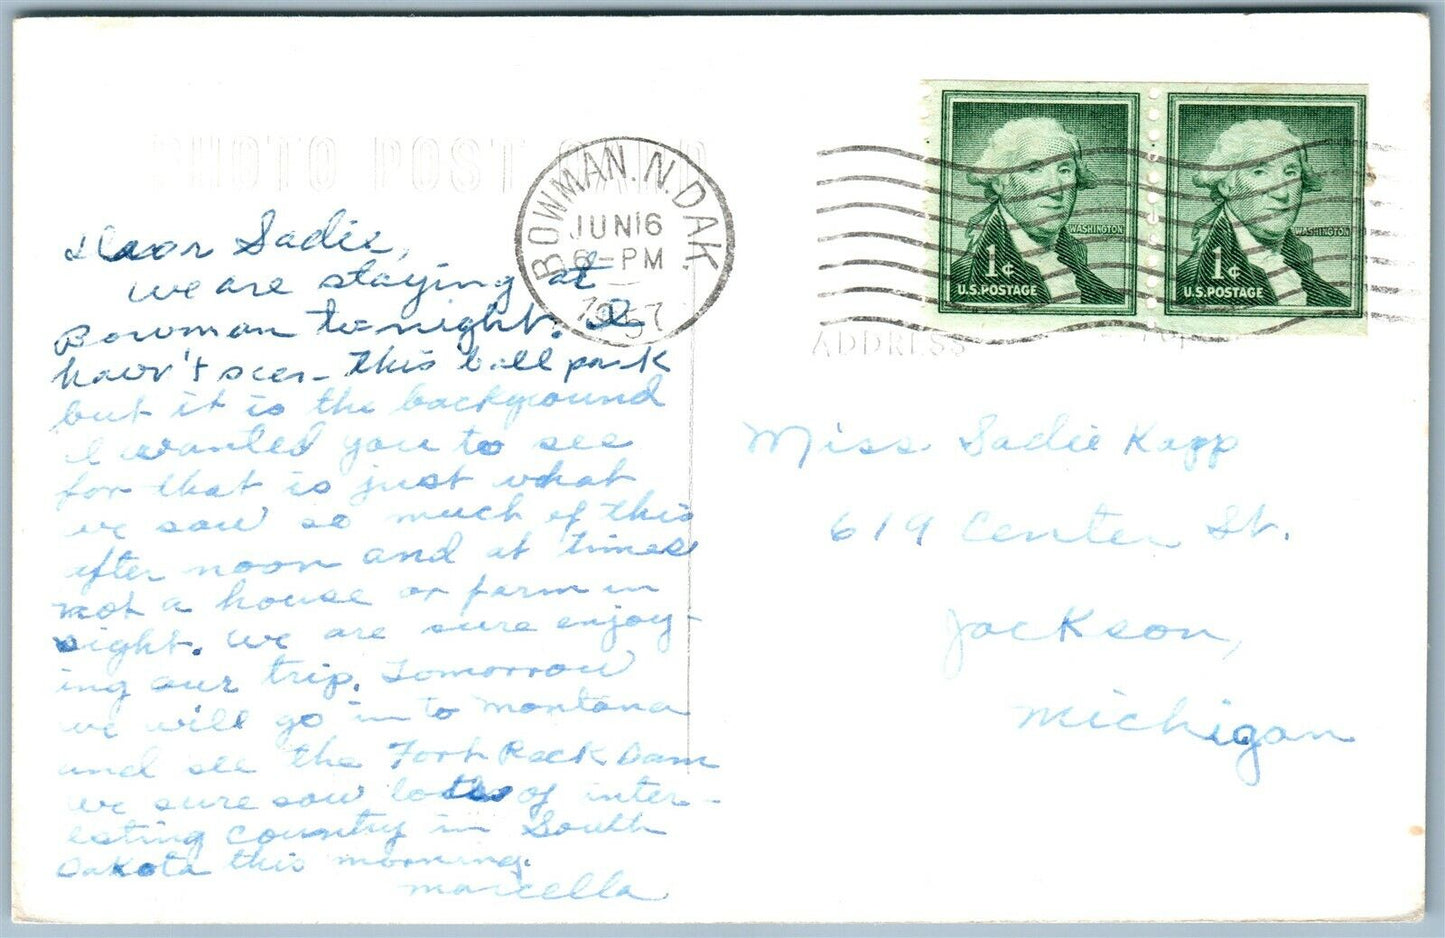 PHOTO POST CARD
BOWMAN. N. DAK.
JUN 16
6 - PM
1957
WASHINGTON
1¢
U.S. POSTAGE
WASHINGTON
1¢
U.S. POSTAGE
ADDRESS
Dear Sadie,
we are staying at
Bowman to-night. I
havn't seen this ball park
but it is the background
I wanted you to see
for that is just what
we saw so much of this
after noon and at times
not a house or farm in
sight. We are sure enjoy-
ing our trip. Tomorrow
we will go in to Montana
and see the Fort Peck Dam
we sure saw lots of inter-
esting country in South
Dakota this morning.
Marcella
Miss Sadie Kapp
619 Center St.
Jackson,
Michigan